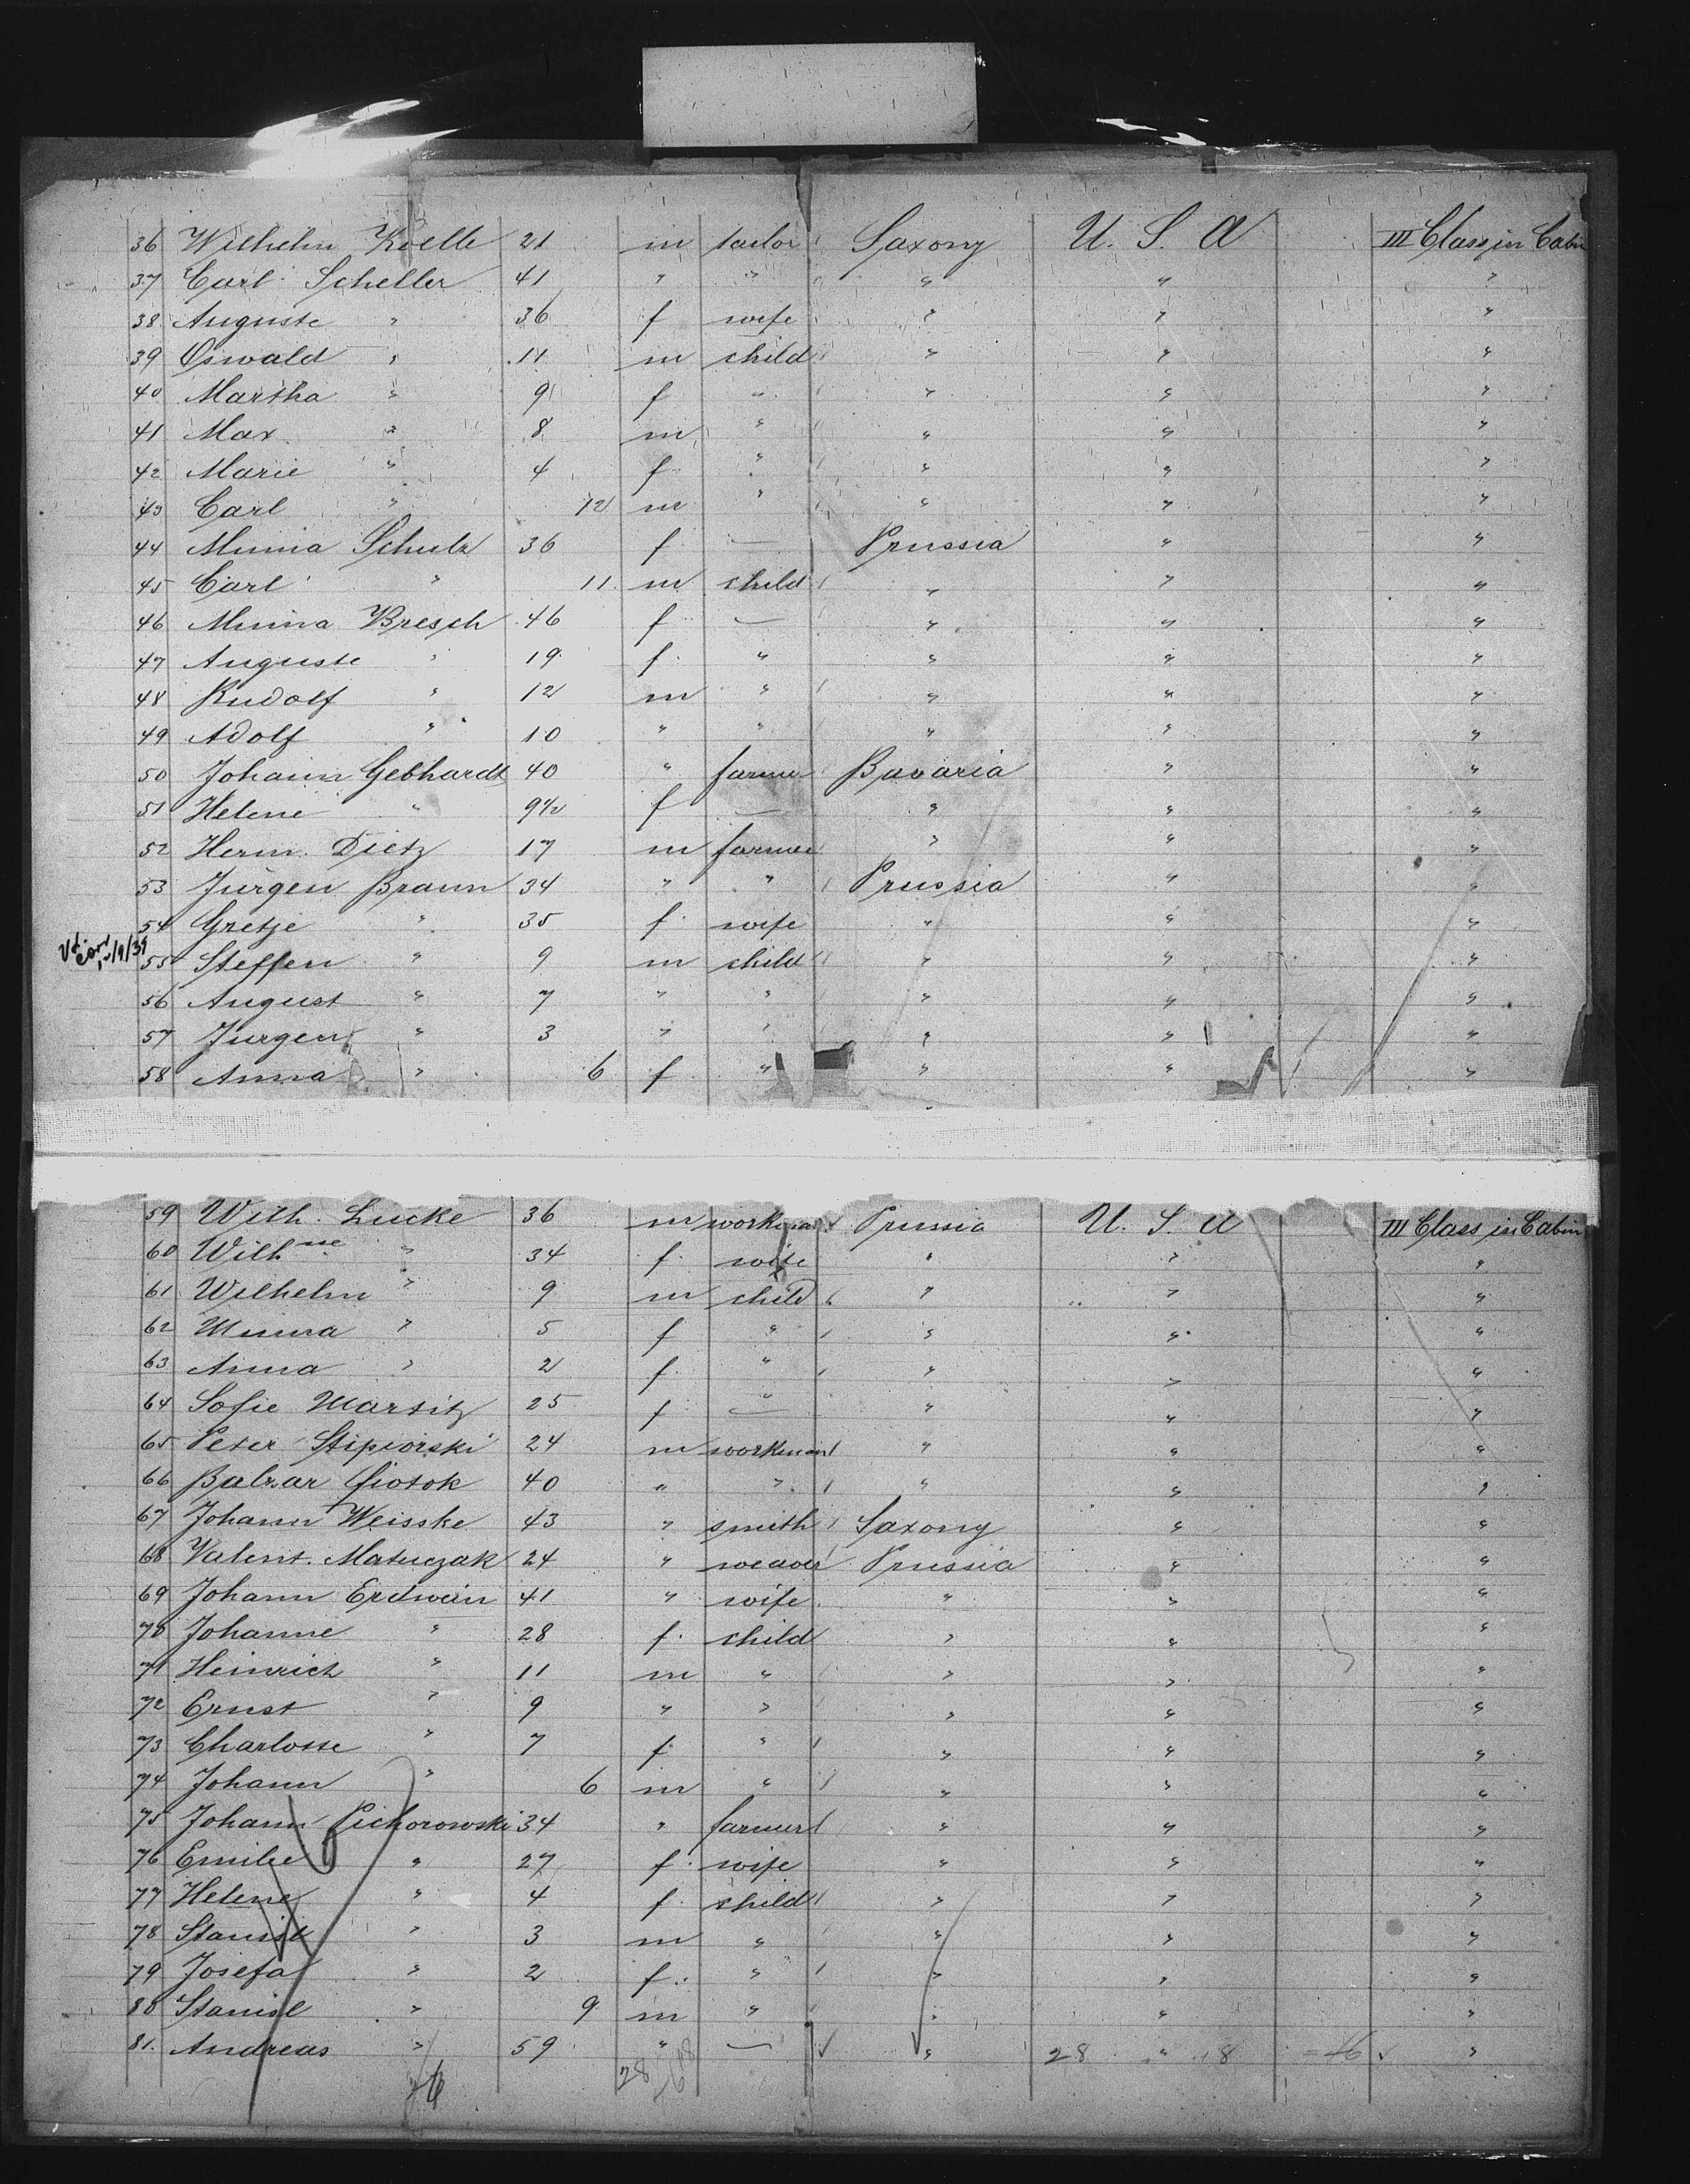 36 Wilhelm Koelle 21 m tailor Saxony U. S. A III Class in Cabin
37 Carl Scheller 41 " " " " "
38 Auguste " 36 f wife " " "
39 Oswald " 11 m child " " "
40 Martha " 9 f " " " "
41 Max " 8 m " " " "
42 Marie " 4 f " " " "
43 Carl " 12 m " " " "
44 Minna Schulz 36 f — Prussia " "
45 Carl " 11 m child " " "
46 Minna Bresch 46 f — " " "
47 Auguste " 19 f " " " "
48 Rudolf " 12 m " " " "
49 Adolf " 10 " " " " "
50 Johann Gebhardt 40 " farmer Bavaria " "
51 Helene " 9½ f — " " "
52 Herm. Dietz 17 m farmer " " "
53 Jürgen Braun 34 " " Prussia " "
54 Gretje " 35 f wife " " "
55 Steffen " 9 m child " " "
56 August " 7 " " " " "
57 Jurgen " 3 " " " " "
58 Anna " 6 f " " " "
59 Wilh. Lucke 36 m workman Prussia U. S. A III Class in Cabin
60 Wilh ne " 34 f wife " " "
61 Wilhelm " 9 m child " " "
62 Minna " 5 f " " " "
63 Anna " 2 f " " " "
64 Sofie Marsitz 25 f — " " "
65 Peter Stipiorski 24 m workman " " "
66 Balzar 40 " " " " "
67 Johann Weisske 43 " smith Saxony " "
68 Valent. Matuczak 24 " weaver Prussia " "
69 Johann Erdwein 41 " wife " " "
70 Johanne " 28 f child " " "
71 Heinrich " 11 m " " " "
72 Ernst " 9 " " " " "
73 Charlotte " 7 f " " " "
74 Johann " 6 m " " " "
75 Johann Pichorowski 34 " farmer " " "
76 Emilie " 27 f wife " " "
77 Helene " 4 f child " " "
78 Stanisl " 3 m " " " "
79 Josefa " 2 f " " " "
80 Stanisl " 9 m " " " "
81. Andreas " 59 " — " 28 " 8 = 46 "
28